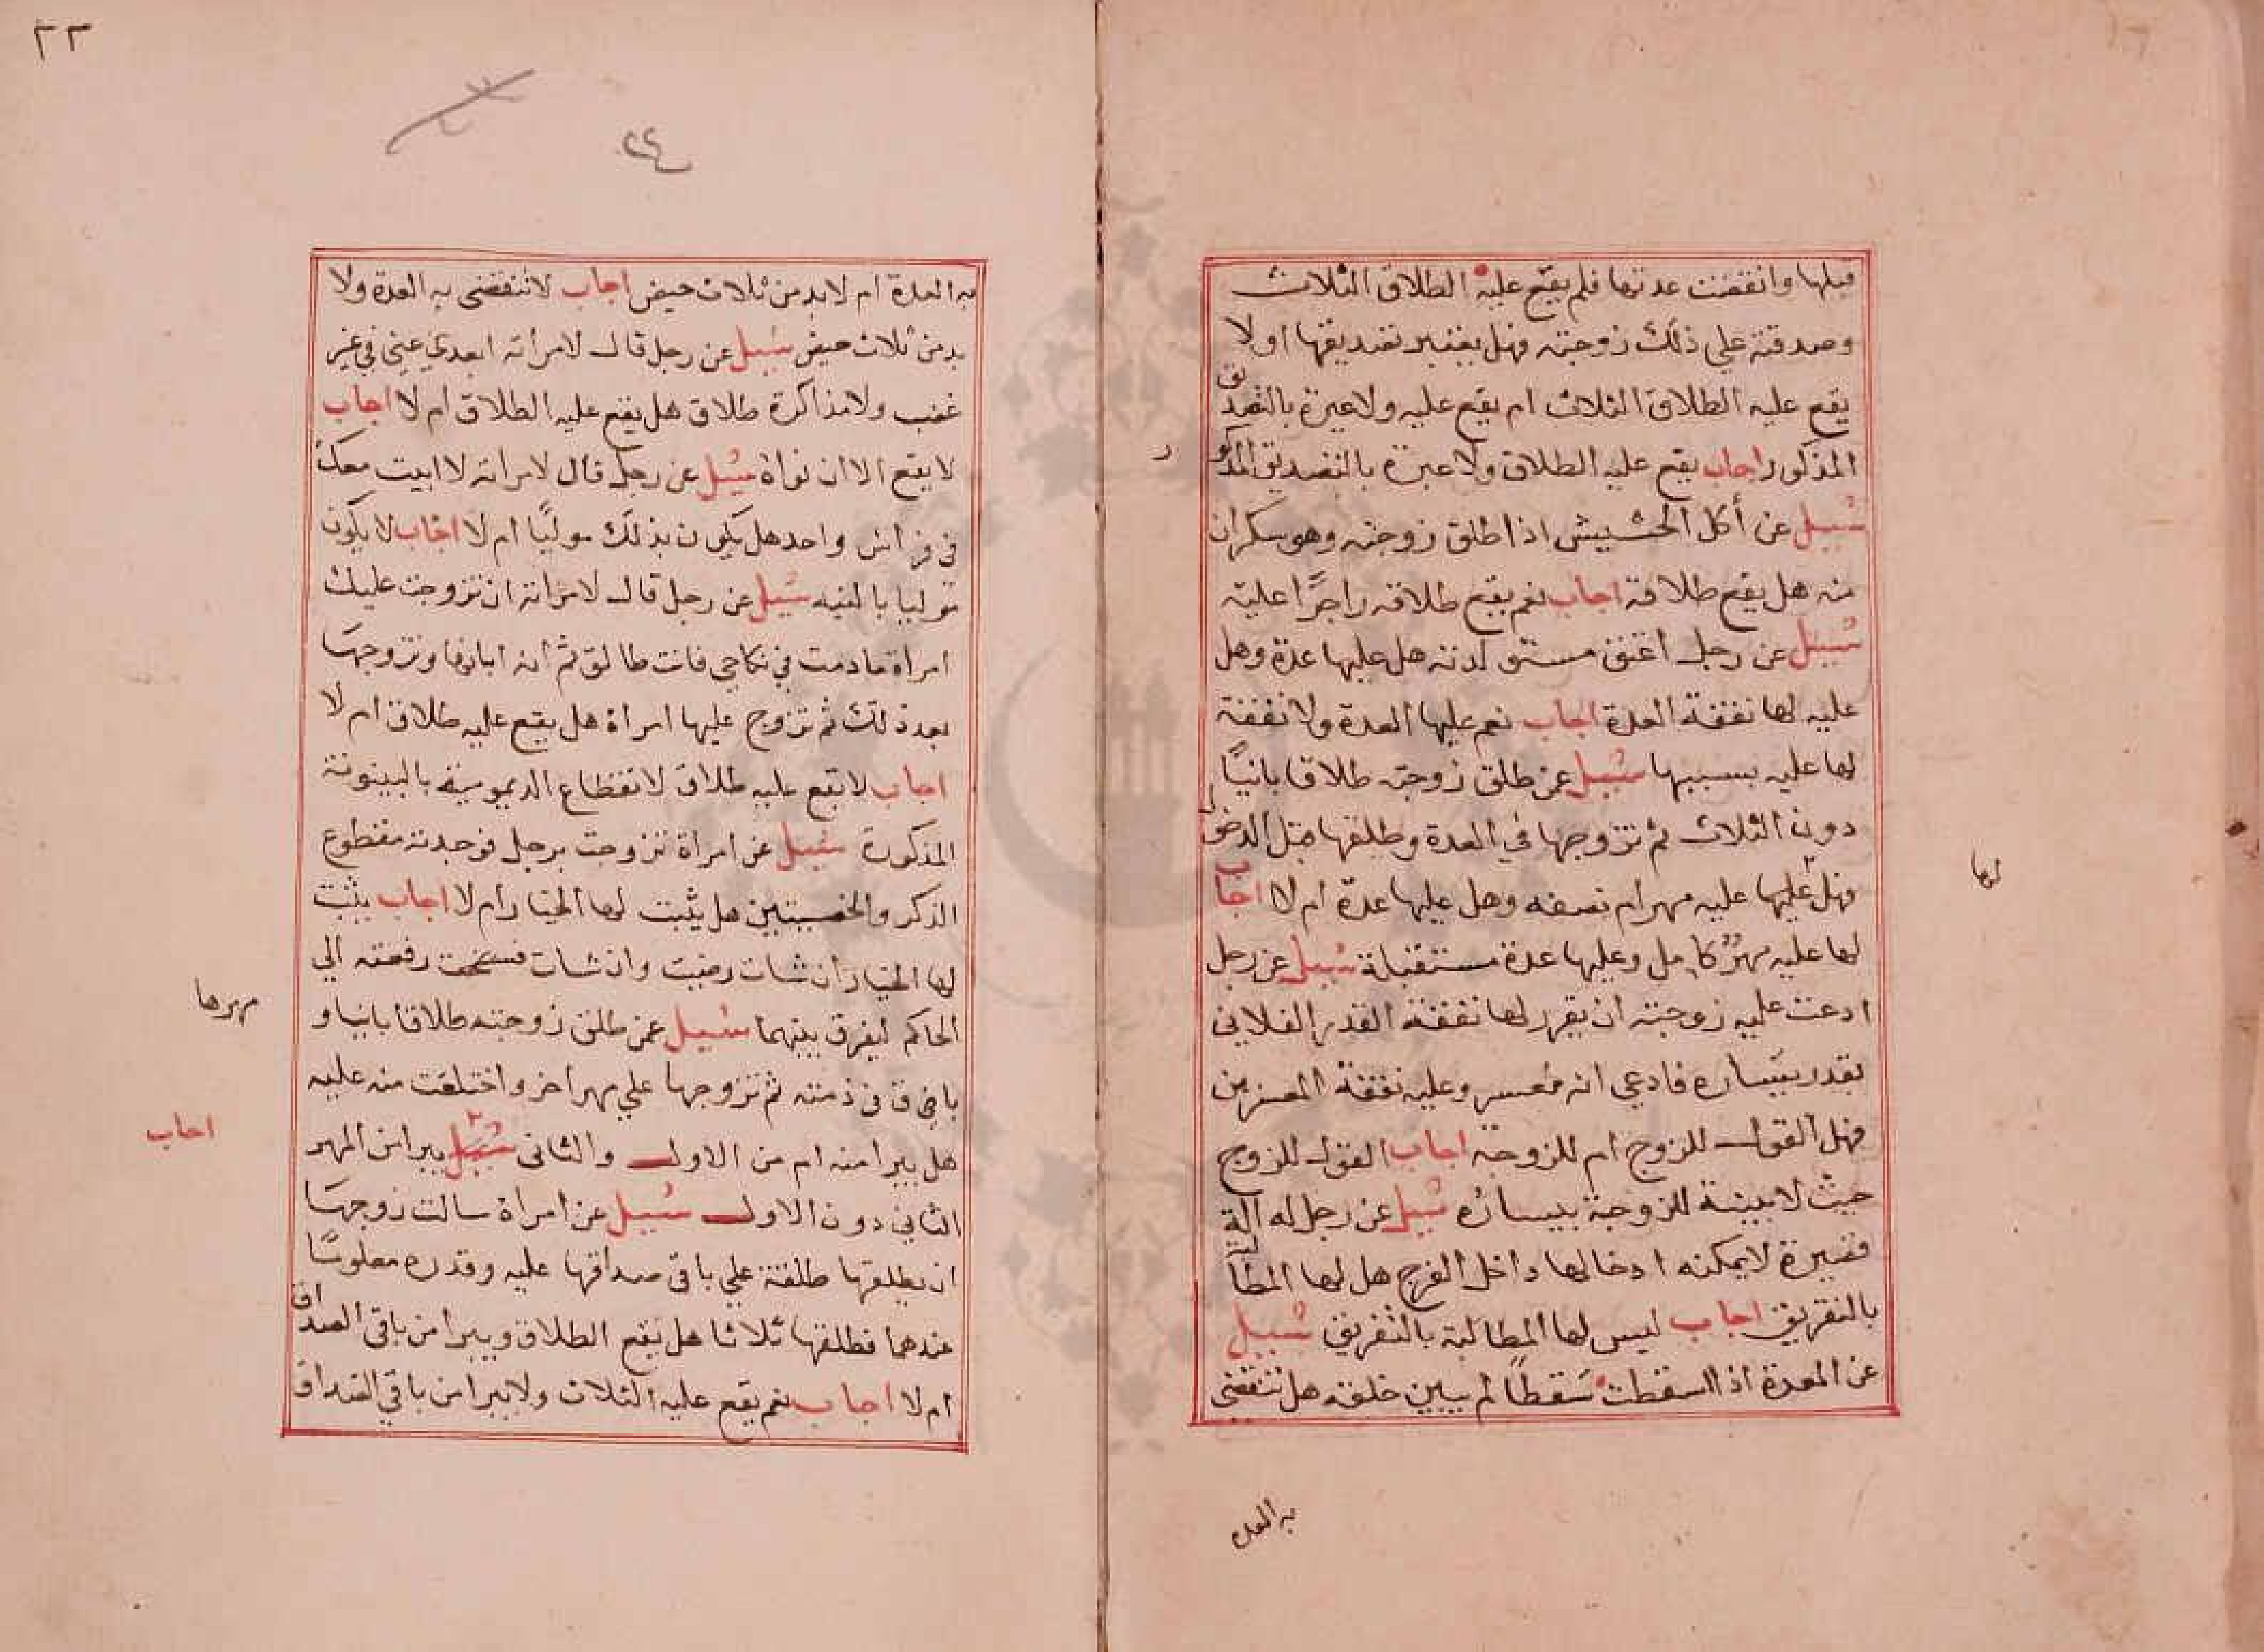 قبلها وانقضت عدتها فلم يقع عليه الطلاق الثلاث
وصدقته علي ذلك زوجته فهل يعتبر تصديقها اولا
يقع عليه الطلاق الثلاث ام يقع عليه ولا عبرة بالتصديق
المذكور اجاب يقع عليه الطلاق ولا عبرة بالتصديق المذكو
ر
سيل عن أكل الحشيش اذا طلق زوجته وهو سكران
منه هل يقع طلاقه اجاب نعم يقع طلاقه زاجرًا عليه
سيل عن رجل اعتق مستولدته هل عليها عدة وهل
عليه لها نفقة العدة اجاب نعم عليها العدة ولا نفقة
لها عليه بسببها سيل عمن طلق زوجته طلاقا باينًا
دون الثلاث ثم تزوجها في العدة وطلقها قبل الدخول
فهل عليها عليه مهر ام نصفه وهل عليها عدة ام لا اجاب
لها
لها عليه مهر كامل وعليها عدة مستقبلة سيل عن رجل
ادعت عليه زوجته ان يقرر لها نفقة القدر الفلاني
بقدر يساره فادعي انه معسر وعليه نفقة المعسرين
فهل القول للزوج ام للزوجة اجاب القول للزوج
حيث لا بينة للزوجة بيساره سيل عن رجل له الة
قصيرة لا يمكنه ادخالها داخل الفرج هل لها المطالبة
بالتفريق اجاب ليس لها المطالبة بالتفريق سيل
عن المعدة اذا اسقطت سقطًا لم يبين خلقه هل تنقضي
به العده
٢٣
٢٤
به العدة ام لابد من ثلاث حيض اجاب لا تنقضي به العدة ولا
بد من ثلاث حيض سيل عن رجل قال لامراته ابعدي عني في غير
غضب ولا مذاكرة طلاق هل يقع عليه الطلاق ام لا اجاب
لا يقع الا ان نواة سيل عن رجل قال لامراته لا ابيت معك
في فراش واحد هل يكون بذلك موليًا ام لا اجاب لا يكون
موليا بالغيه سيل عن رجل قال لامراته ان تزوجت عليك
امراة ما دمت في نكاحي فانت طالق ثم انه ابانها وتزوجها
بعد ذلك ثم تزوج عليها امراة هل يقع عليه طلاق ام لا
اجاب لا يقع عليه طلاق لانقطاع الديمومية بالبينونة
المذكورة سيل عن امراة تزوجت برجل فوجدته مقطوع
الذكر والخصيتين هل يثبت لها الخيار ام لا اجاب يثبت
لها الخيار ان شات رضيت وان شات فسخت رفعته الي
الحاكم ليفرق بينهما سيل عمن طلق زوجته طلاقا باينا و
مهرها
باق في ذمته ثم تزوجها علي مهر اخر واختلعت منه عليه
هل يبرا منه ام من الاول والثاني سيل يبرا من المهر
اجاب
الثاني دون الاول سيل عن امراة سالت زوجها
ان يطلقها طلقة علي باقي صداقها عليه وقدره معلومًا
عندهما فطلقها ثلاثا هل يقع الطلاق ويبرا من باقي الصداق
ام لا اجاب نعم يقع عليه الثلاث ولا يبرا من باقي الصداق